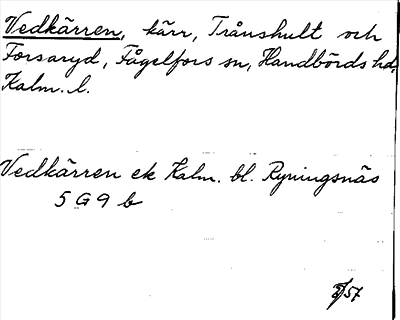 Vedkärren, kärr, Trånshult och
Forsaryd, Fågelfors sn, Handbörds hd,
Kalm. l.
Vedkärren ek Kalm. bl. Ryningsnäs
5 G 9 b
/57